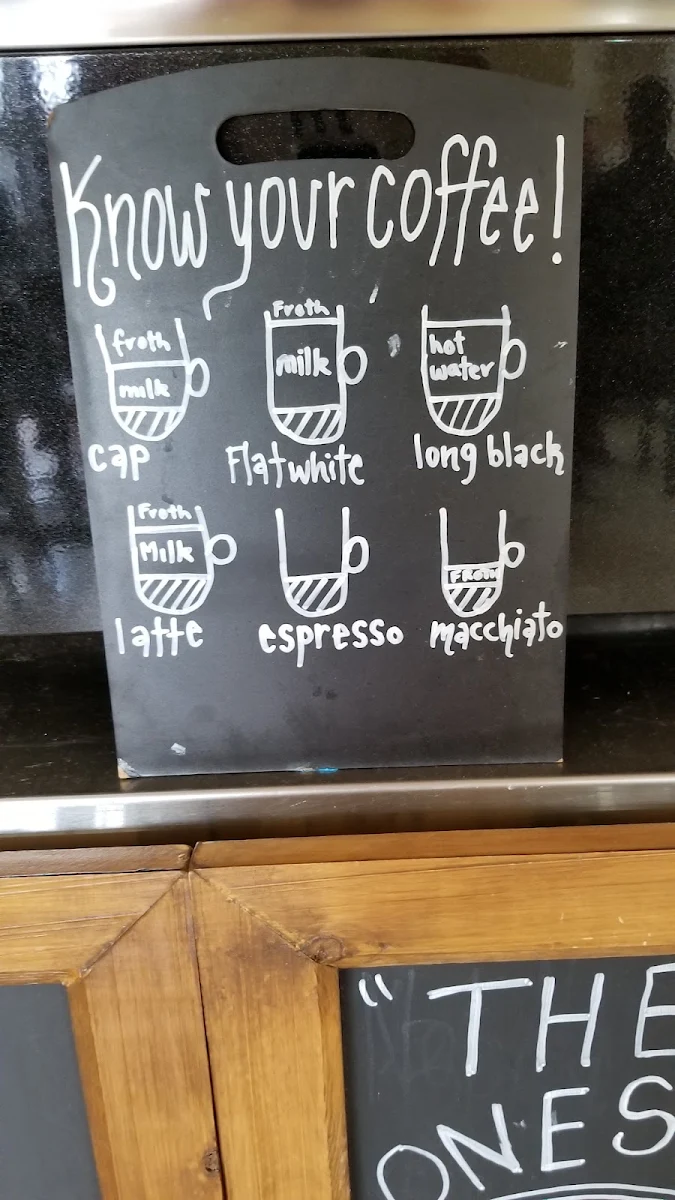 Know your coffee!
froth
milk
cap
Froth
milk
Flat white
hot
water
long black
Froth
Milk
latte
espresso
FROTH
macchiato
"THE
ONES